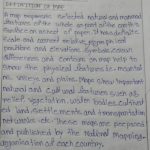 DEFINITION OF MAP
A map represents selected natural and manmade
features of the whole or part of the earth's
surface on a sheet of paper. It has definite
scale and correct relative geographical
positions and elevations. It makes colour
differences and contours on map help to
show the physical features i.e. mountai-
ns, valleys and plains. Maps show important
natural and cultural features such as
relief vegetation, water bodies, cultivat-
ed land, settlements and transportation
networks etc. These maps are prepared
and published by the national Mapping
organisation of each country.